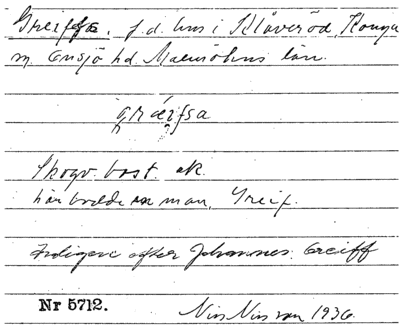 Greiffsa, f.d. hus i Klåveröd, Konga
sn, Onsjö hd, Malmöhus län.
gräifsa
Skogv. bost. ok.
här bodde en man, Greif.
Troligen efter Johannes Greiff
Nr 5712.
Nils Nilsson 1936.